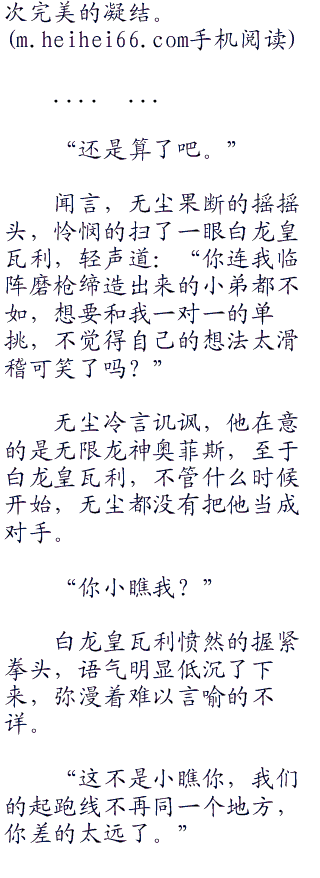 次完美的凝结。
(m.heihei66.com手机阅读)
.... ...
“还是算了吧。”
闻言，无尘果断的摇摇
头，怜悯的扫了一眼白龙皇
瓦利，轻声道：“你连我临
阵磨枪缔造出来的小弟都不
如，想要和我一对一的单
挑，不觉得自己的想法太滑
稽可笑了吗？”
无尘冷言讥讽，他在意
的是无限龙神奥菲斯，至于
白龙皇瓦利，不管什么时候
开始，无尘都没有把他当成
对手。
“你小瞧我？”
白龙皇瓦利愤然的握紧
拳头，语气明显低沉了下
来，弥漫着难以言喻的不
详。
“这不是小瞧你，我们
的起跑线不再同一个地方，
你差的太远了。”